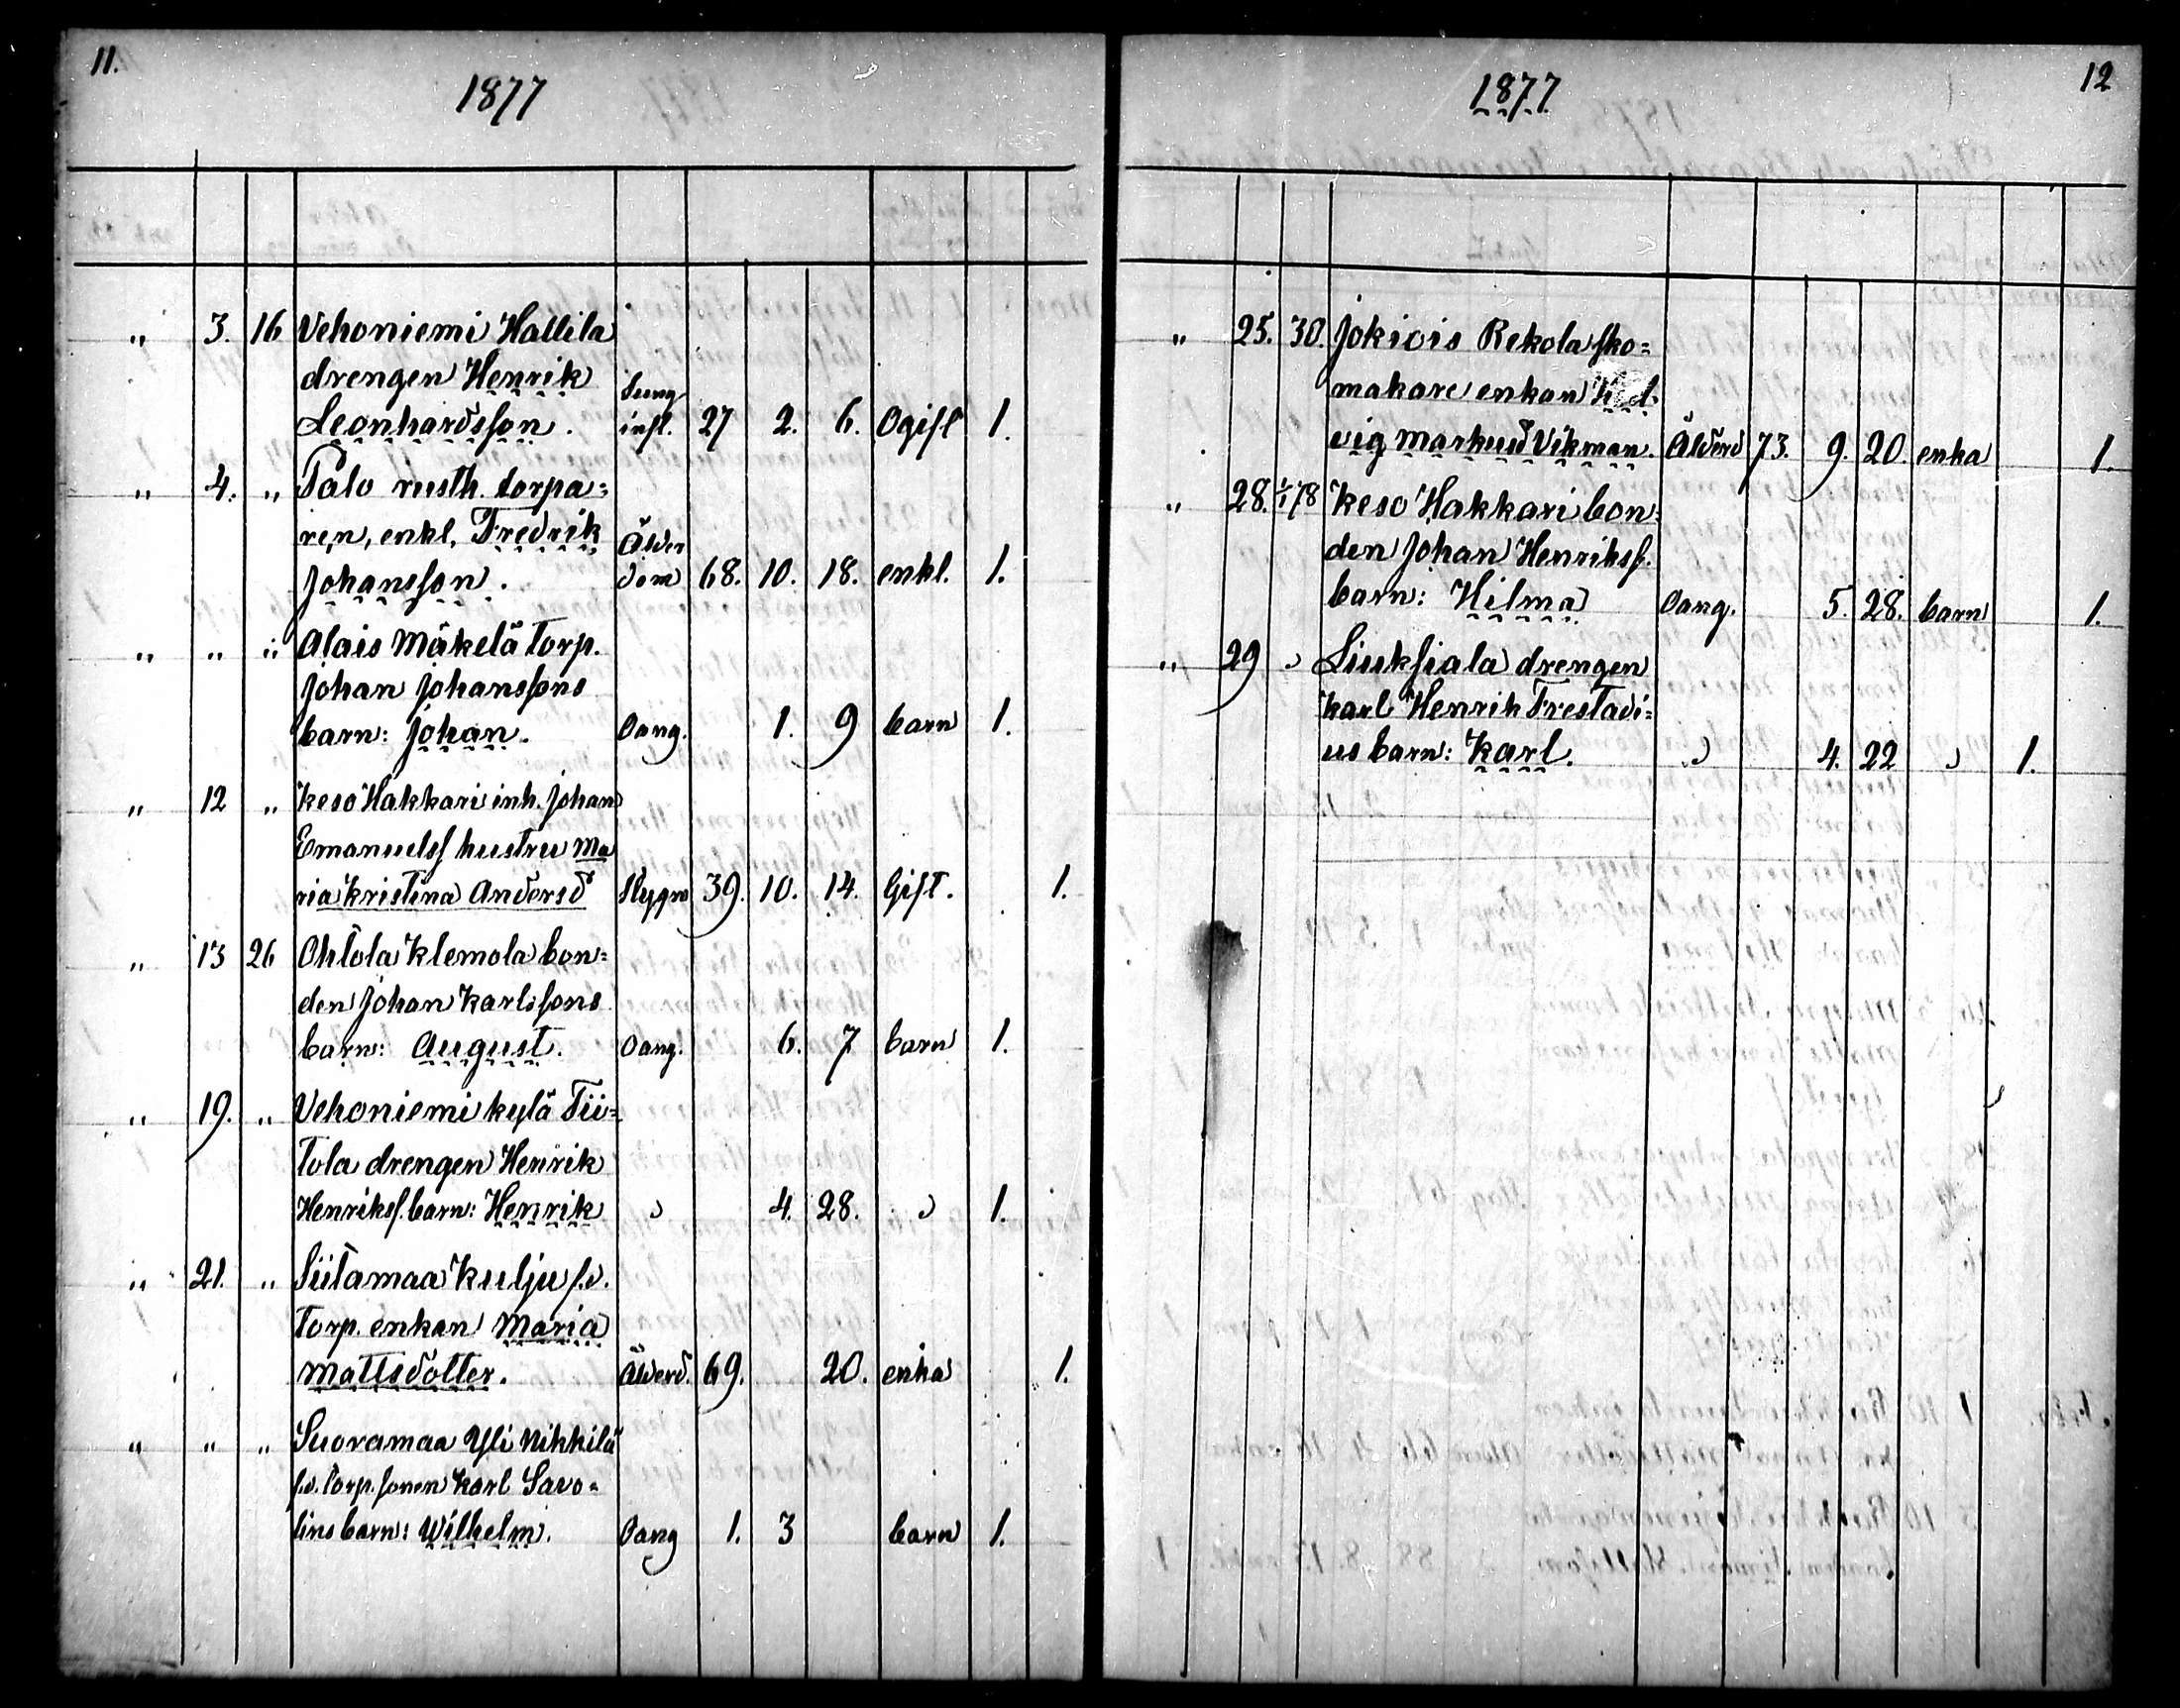 11.
1877
„ 3. 16 Vehoniemi Hallila
drengen Henrik Lung
Leonhardsson. infl. 27 2. 6. Ogift 1.
„ 4. „ Palo rusth. torpa=
ren, enkl. Fredrik Ålder
Johansson. dom 68. 10. 18. enkl. 1.
„ „ „ Alais Mäkelä torp.
Johan Johanssons
barn: Johan. Oang. 1. 9 barn 1.
„ 12 „ Keso Hakkari inh. Johan
Emanuelss hustru Ma
ria Kristina Andersd Slagn 39. 10. 14. Gift. 1.
„ 13 26 Ohtola Klemola bon=
den Johan Karlssons
barn: August. Oang. 6. 7 barn 1.
„ 19. „ Vehoniemi kylä Tii=
tola drengen Henrik
Henrikss. barn: Henrik „ 4. 28. „ 1.
„ 21. „ Siitamaa Kulju f.d.
torp. enkan Maria
Mattsdotter. Ålderd. 69. 20. enka 1.
„ „ „ Suoramaa Yli Nikkilä
f.d. torp. sonen Karl Savo=
lins barn: Wilhelm. Oang 1. 3 barn 1.
12
1877
„ 25. 30. Jokiois Rekola sko=
makare enkan Hed=
vig Markusd Vikman. Ålderd 73. 9. 20. enka 1.
„ 28. 1/1 78 Keso Hakkari bon=
den Johan Henrikss.
barn: Hilma Oang. 5. 28. barn 1.
„ 29 „ Liuksiala drengen
Karl Henrik Frestadi=
us barn: Karl. „ 4. 22 „ 1.